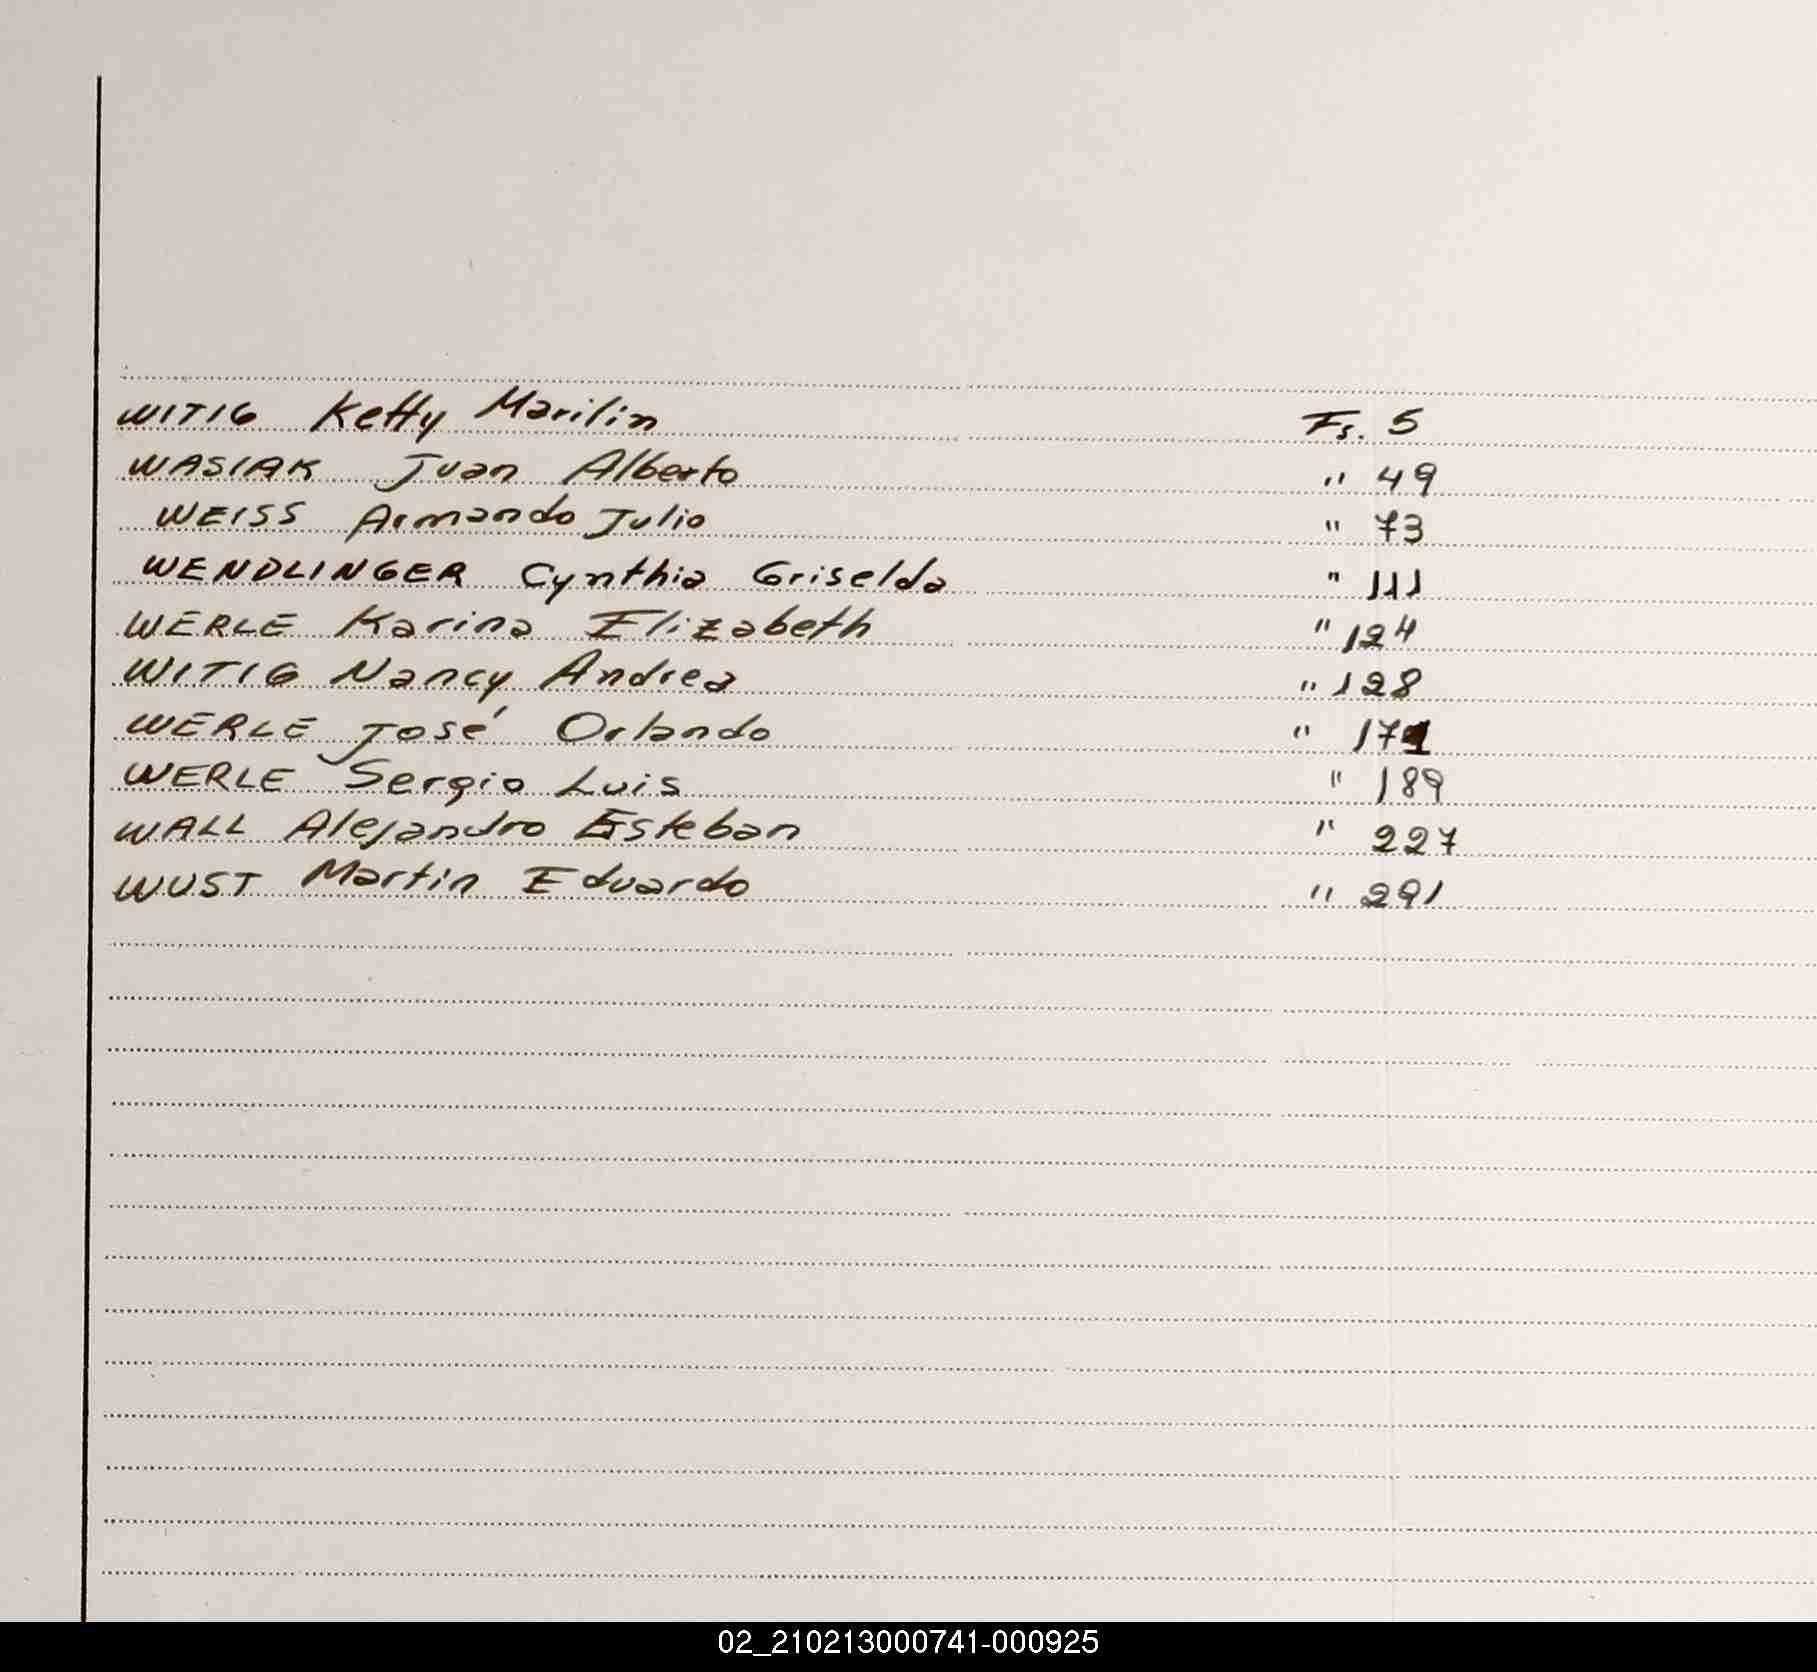 WITIG Ketty Marilin Fs. 5
WASIAK Juan Alberto " 49
WEISS Armando Julio " 73
WENDLINGER Cynthia Griselda " 111
WERLE Karina Elizabeth " 124
WITIG Nancy Andrea " 128
WERLE José Orlando " 171
WERLE Sergio Luis " 189
WALL Alejandro Esteban " 227
WUST Martin Eduardo " 291
02_210213000741-000925